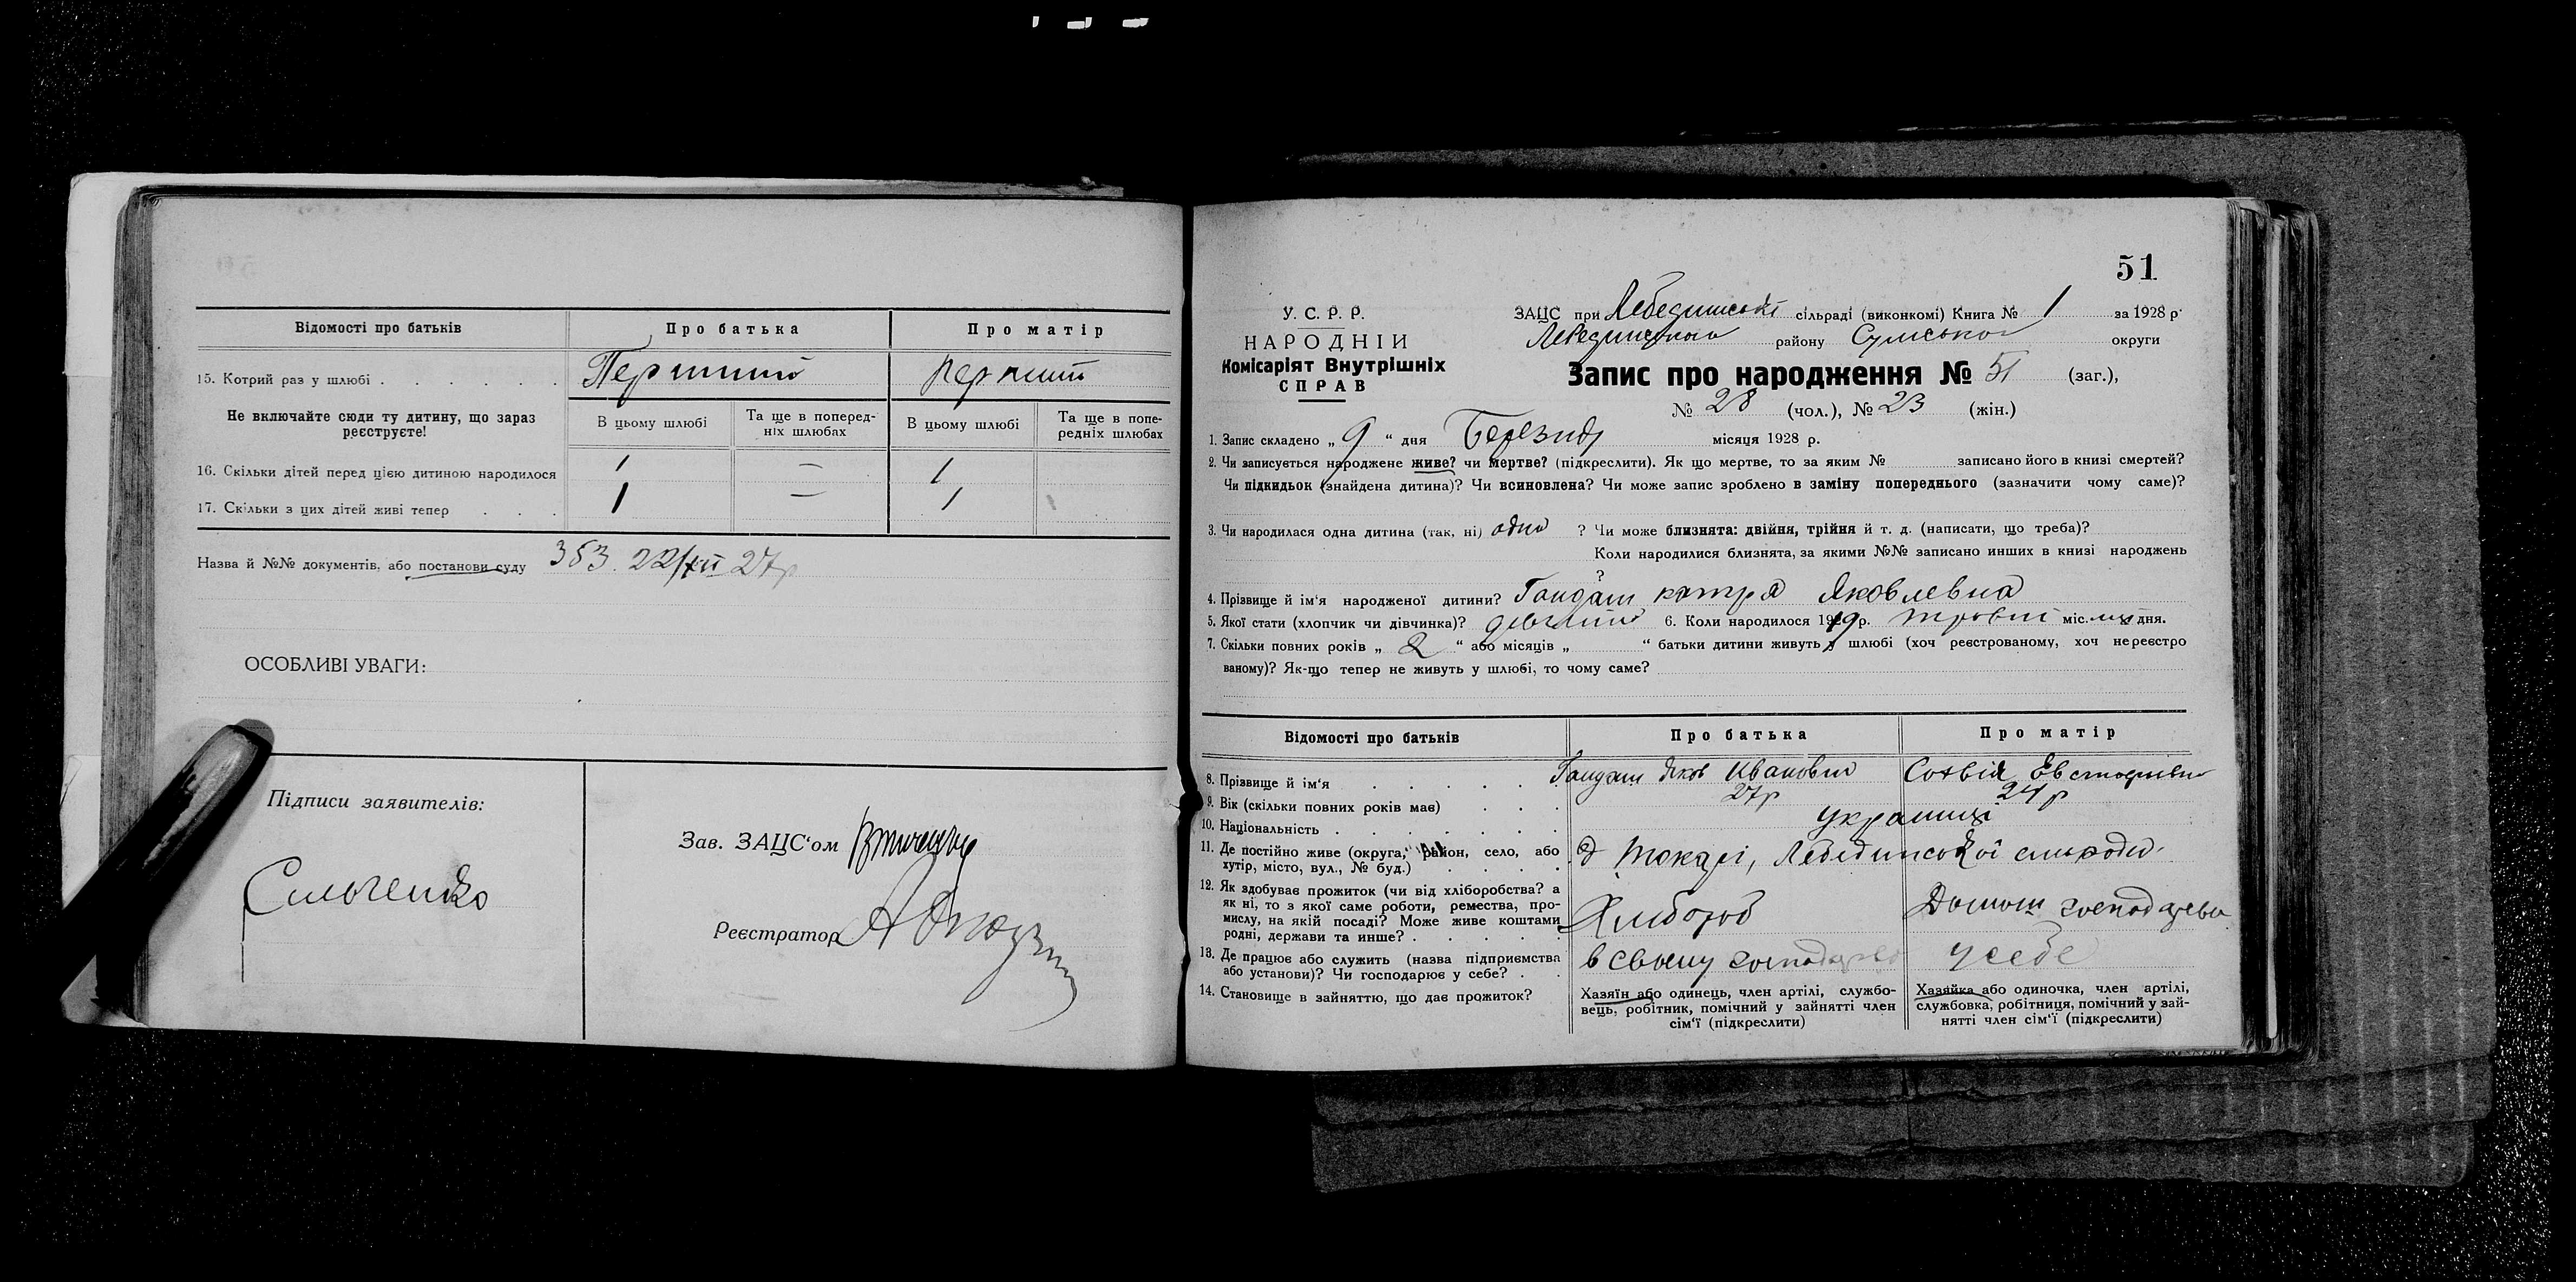 Відомості про батьків
Про батька
Про матір
15. Котрий раз у шлюбі . . . . . . .
Перший
перший
Не включайте сюди ту дитину, що зараз реєструєте!
В цьому шлюбі
Та ще в поперед-
ніх шлюбах
В цьому шлюбі
Та ще в попе-
редніх шлюбах
16. Скільки дітей перед цією дитиною народилося
1 — 1
17. Скільки з цих дітей живі тепер . . .
1 — 1
Назва й №№ документів, або постанови суду 353. 22/XII 27р
ОСОБЛИВІ УВАГИ:
Підписи заявителів:
Зав. ЗАЦС'ом
Реєстратор
51
У. С. Р. Р.
НАРОДНІЙ
Комісаріят Внутрішніх
СПРАВ
ЗАЦС при Лебединській сільраді (виконкомі) Книга № 1 за 1928 р.
Лебединського району Сумської округи
Запис про народження № 51 (заг.),
№ 28 (чол.), № 23 (жін.)
1. Запис складено „ 9 “ дня Березня місяця 1928 р.
2. Чи записується народжене живе? чи мертве? (підкреслити). Як що мертве, то за яким № записано його в книзі смертей?
Чи підкидьок (знайдена дитина)? Чи всиновлена? Чи може запис зроблено в заміну попереднього (зазначити чому саме)?
3. Чи народилася одна дитина (так, ні) одна ? Чи може близнята: двійня, трійня й т. д. (написати, що треба)?
Коли народилися близнята, за якими №№ записано инших в книзі народжень
?
4. Прізвище й ім'я народженої дитини? Гандаш катря Яковлевна
5. Якої стати (хлопчик чи дівчинка)? 6. Коли народилося 19 р. міс. дня.
7. Скільки повних років „ 2 “ або місяців „ “ батьки дитини живуть у шлюбі (хоч реєстрованому, хоч нереєстро
ваному)? Як-що тепер не живуть у шлюбі, то чому саме?
Відомості про батьків
Про батька
Про матір
8. Прізвище й ім'я . . . . . .
Гандаш Яков Иванович
Софвія
9. Вік (скільки повних років має) . . .
27р
24 р
10. Національність . . . . . . .
українці
11. Де постійно живе (округа, район, село, або
хутір, місто, вул., № буд.) . . . .
Токарі, Лебединської
12. Як здобуває прожиток (чи від хліборобства? а
як ні, то з якої саме роботи, ремества, про-
мислу, на якій посаді? Може живе коштами
родні, держави та инше? . . . . .
Хлибороб
13. Де працює або служить (назва підприємства
або установи)? Чи господарює у себе? . .
в своему
у себе
14. Становище в зайняттю, що дає прожиток?
Хазяїн або одинець, член артілі, службо-
вець, робітник, помічний у зайнятті член
сім'ї (підкреслити)
Хазяйка або одиночка, член артілі,
службовка, робітниця, помічний у зай-
нятті член сім'ї (підкреслити)